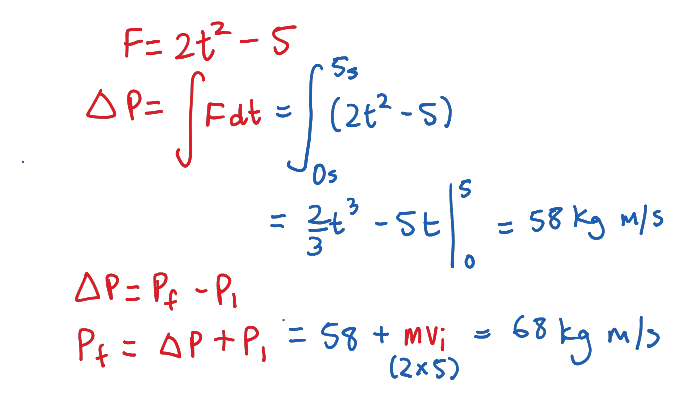 F = 2t² - 5
ΔP = ∫Fdt = ∫₀ₛ⁵ˢ (2t² - 5)
= 2/3 t³ - 5t |₀⁵ = 58 kg m/s
ΔP = P_f - P₁
P_f = ΔP + P₁ = 58 + mvᵢ = 68 kg m/s
(2×5)